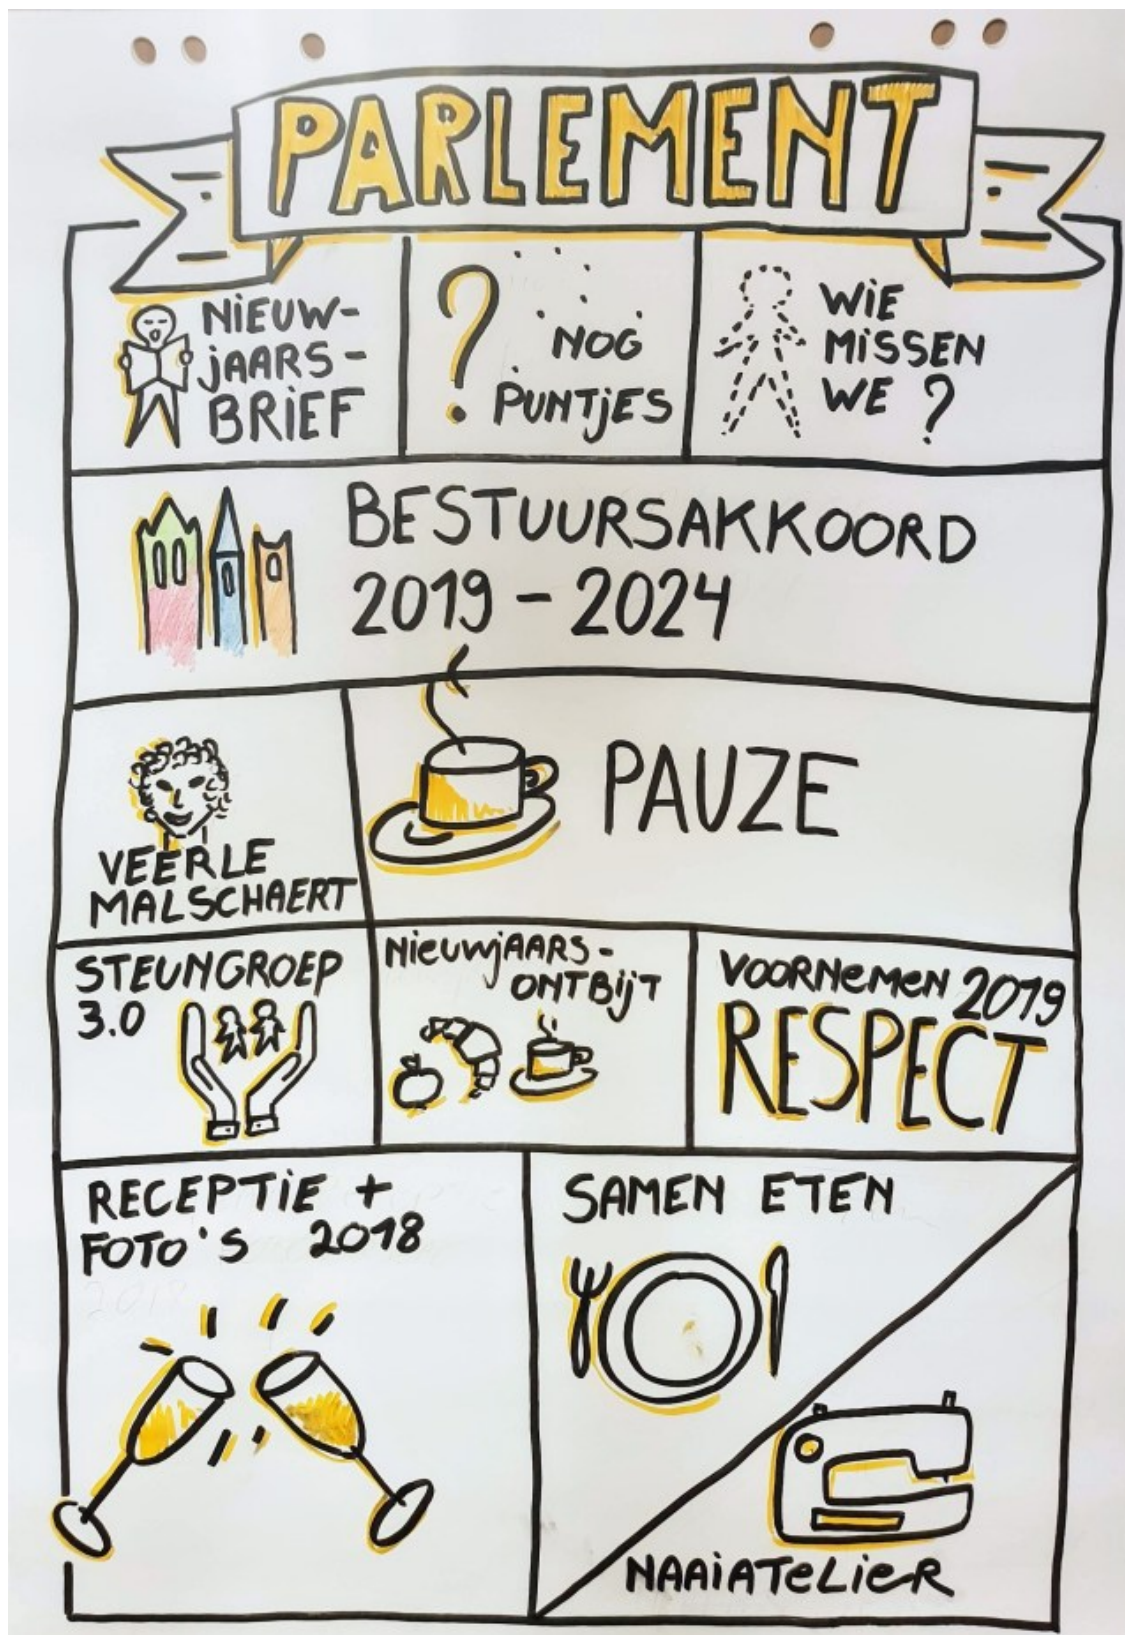 PARLEMENT
NIEUW-
JAARS-
BRIEF
?
NOG
PUNTJES
WIE
MISSEN
WE ?
BESTUURSAKKOORD
2019 - 2024
VEERLE
MALSCHAERT
PAUZE
STEUNGROEP
3.0
NIEUWJAARS-
ONTBIJT
VOORNEMEN 2019
RESPECT
RECEPTIE +
FOTO'S 2018
SAMEN ETEN
NAAIATELIER